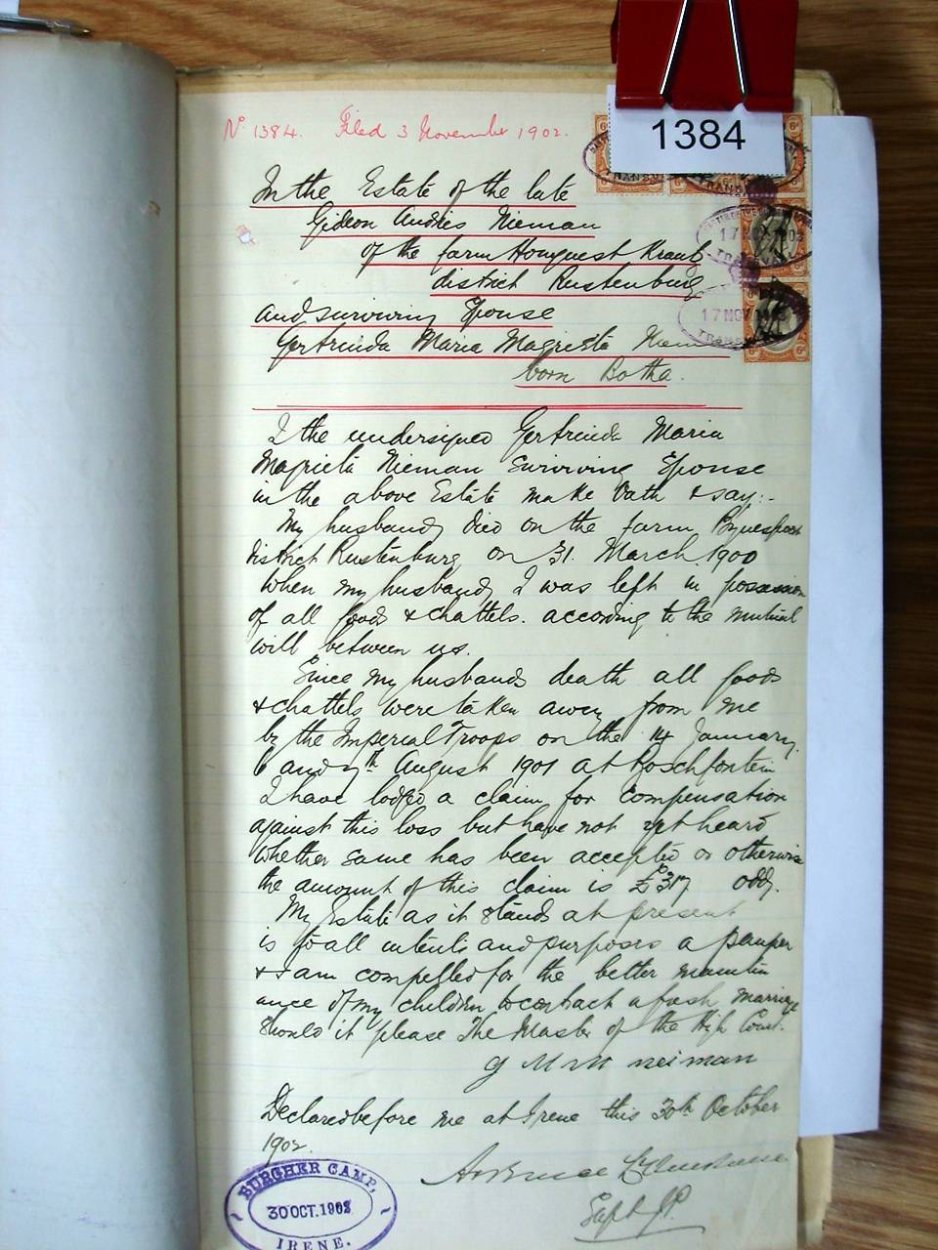 No 1384. Filed 3 November 1902.
1384
In the Estate of the late
Gideon Andries Nieman
of the farm Kraal
district Rustenburg
and surviving Spouse
Gertruida Maria Magrieta
born Botha.
TRANSVAAL
17 NOV
17 NOV
I the undersigned Gertruida Maria
Magrieta Nieman surviving Spouse
in the above Estate make Oath & say:-
My husband died on the farm
district Rustenburg on 31 March 1900
When my husband, I was left in possession
of all goods & chattels. according to the mutual
will between us.
Since my husbands death all goods
& chattels were taken away from me
by the Imperial Troops on the 14 January
6 and 7th August 1901 at
I have lodged a claim for compensation
against this loss but have not yet heard
whether same has been accepted or otherwise
the amount of this claim is £317 odd.
My Estate as it stands at present
is to all intents and purposes a pauper
& I am compelled for the better maintin
ance of my children to contract a fresh marriage
should it please The Master of the High Court.
G M M neiman
Declared before me at Irene this 30th October
1902.
BURGHER CAMP,
30 OCT. 1902
IRENE.
Capt JP.